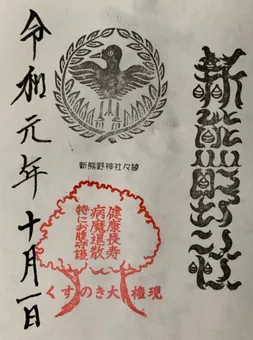 新熊野神社
新熊野神社々紋
健康長寿
病魔退散
特にお腹守護
くすのき大権現
令和元年十月一日